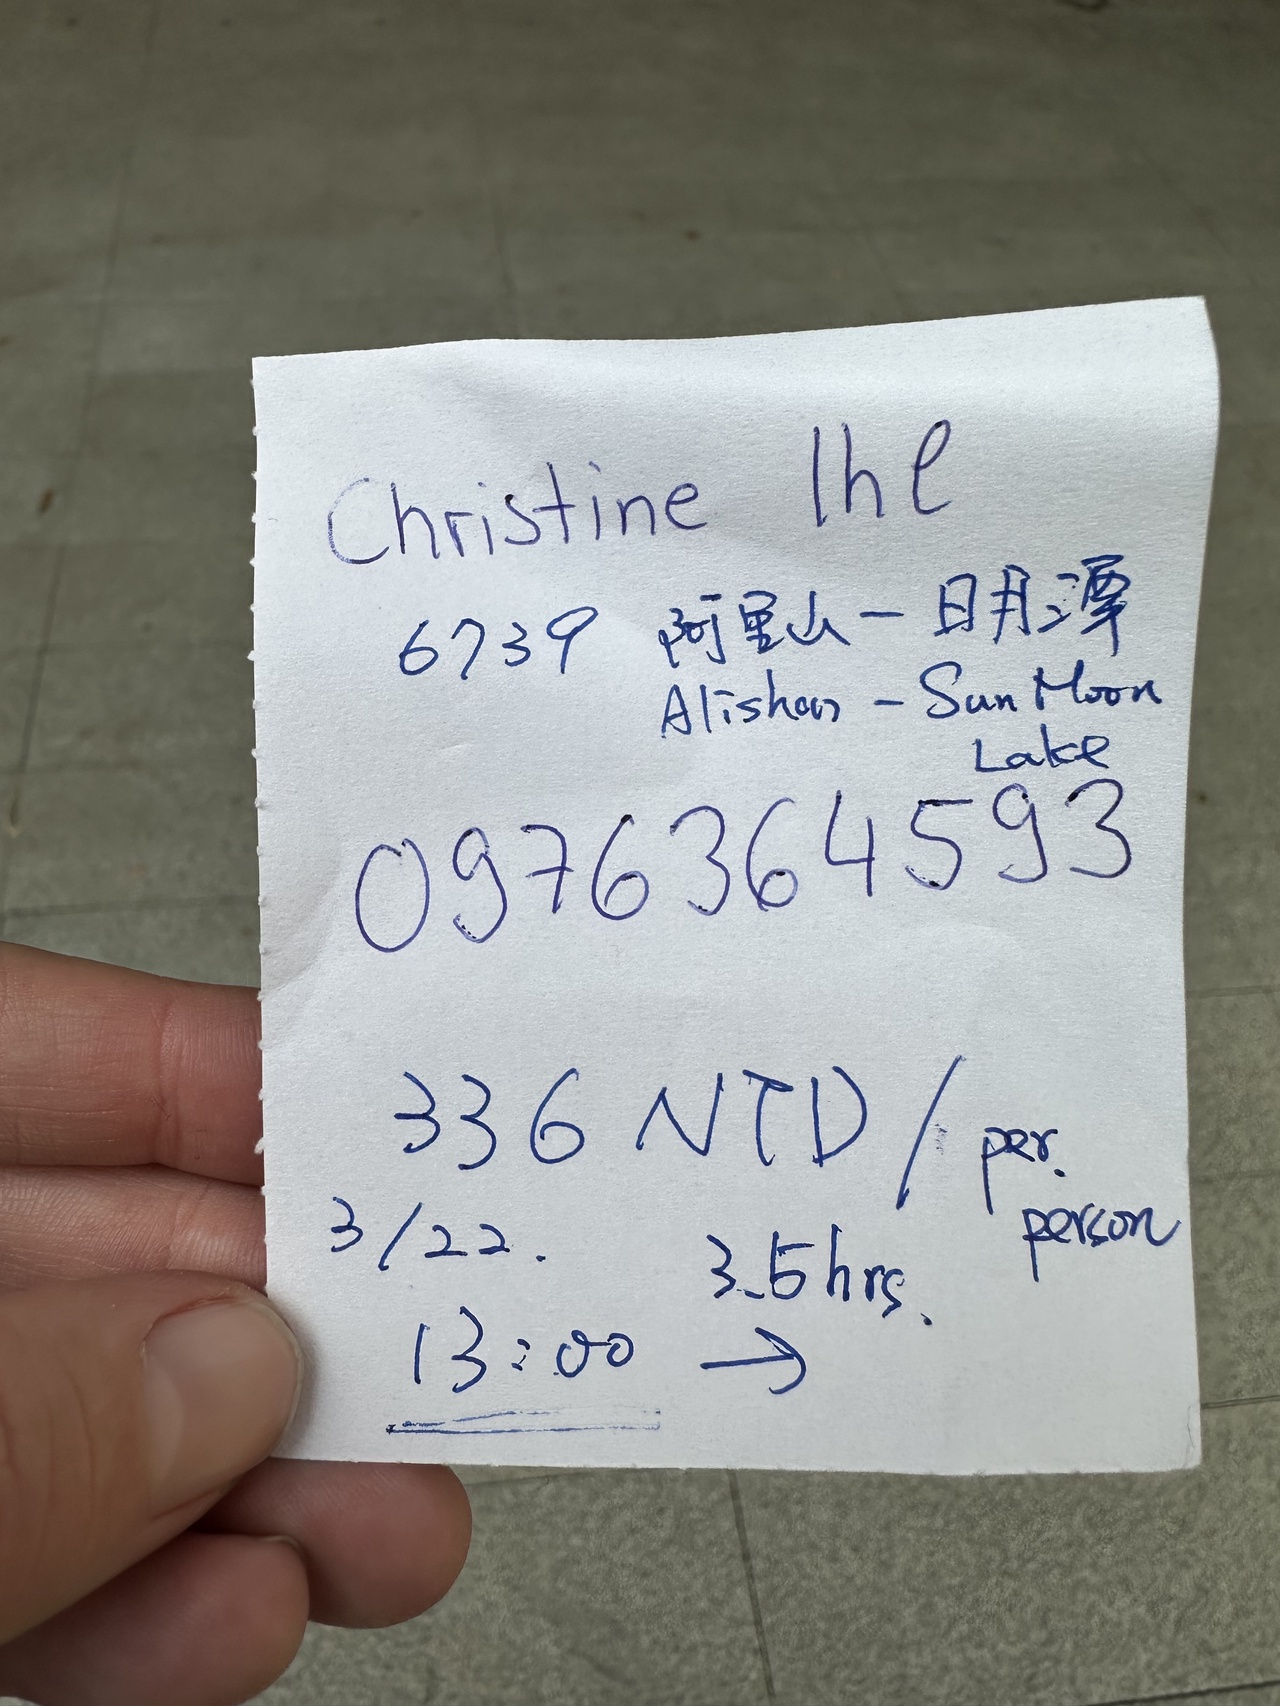 Christine Ihl
6739 阿里山－日月潭
Alishan - Sun Moon
Lake
0976364593
336 NTD / per.
person
3/22. 3.5hrs.
13:00 →